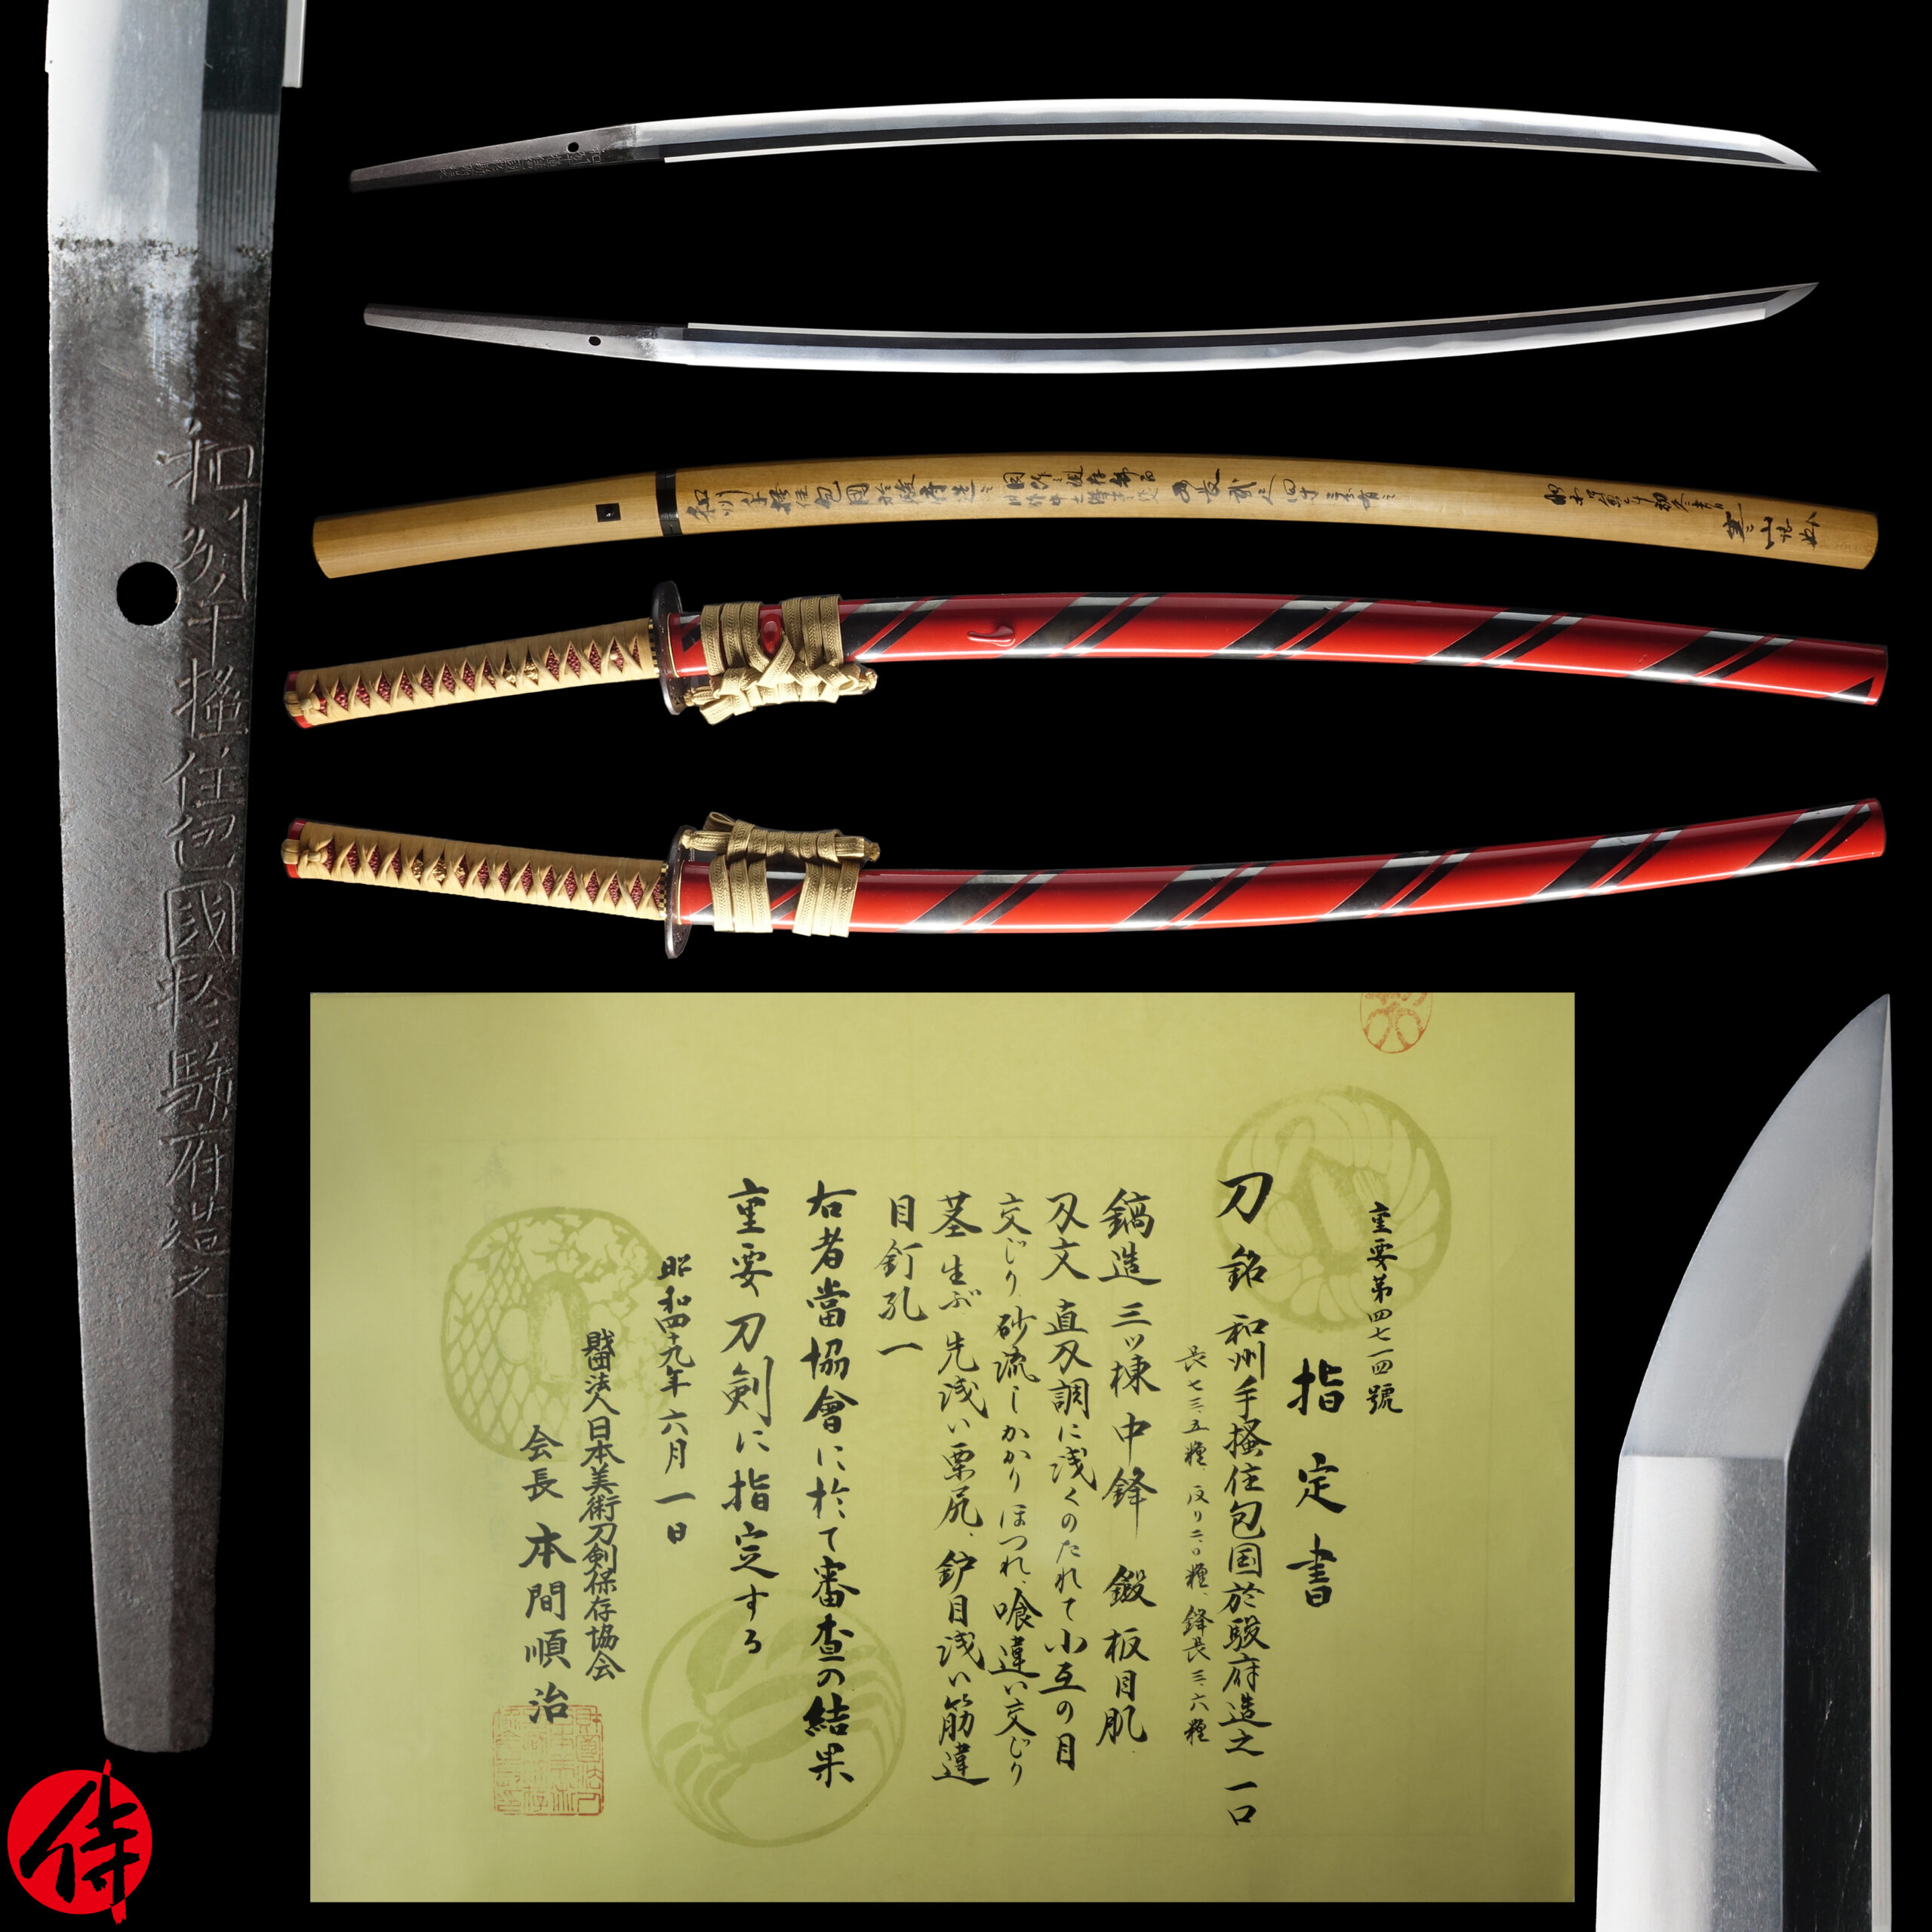 和州手掻住包國於駿府造之
重要第四七一四號
指定書
刀 銘 和州手掻住包国於駿府造之 一口
長七三、五糎、反り二、〇糎、鋒長三、六糎
鎬造 三ッ棟 中鋒 鍛 板目肌
刃文 直刃調に浅くのたれて小互の目
交じり、砂流しかかり ほつれ、喰違い交じり
茎 生ぶ 先浅い栗尻、鈩目浅い筋違
目釘孔一
右者當協會に於て審査の結果
重要刀剣に指定する
昭和四十九年六月一日
財団法人日本美術刀剣保存協会
会長 本間順治
侍